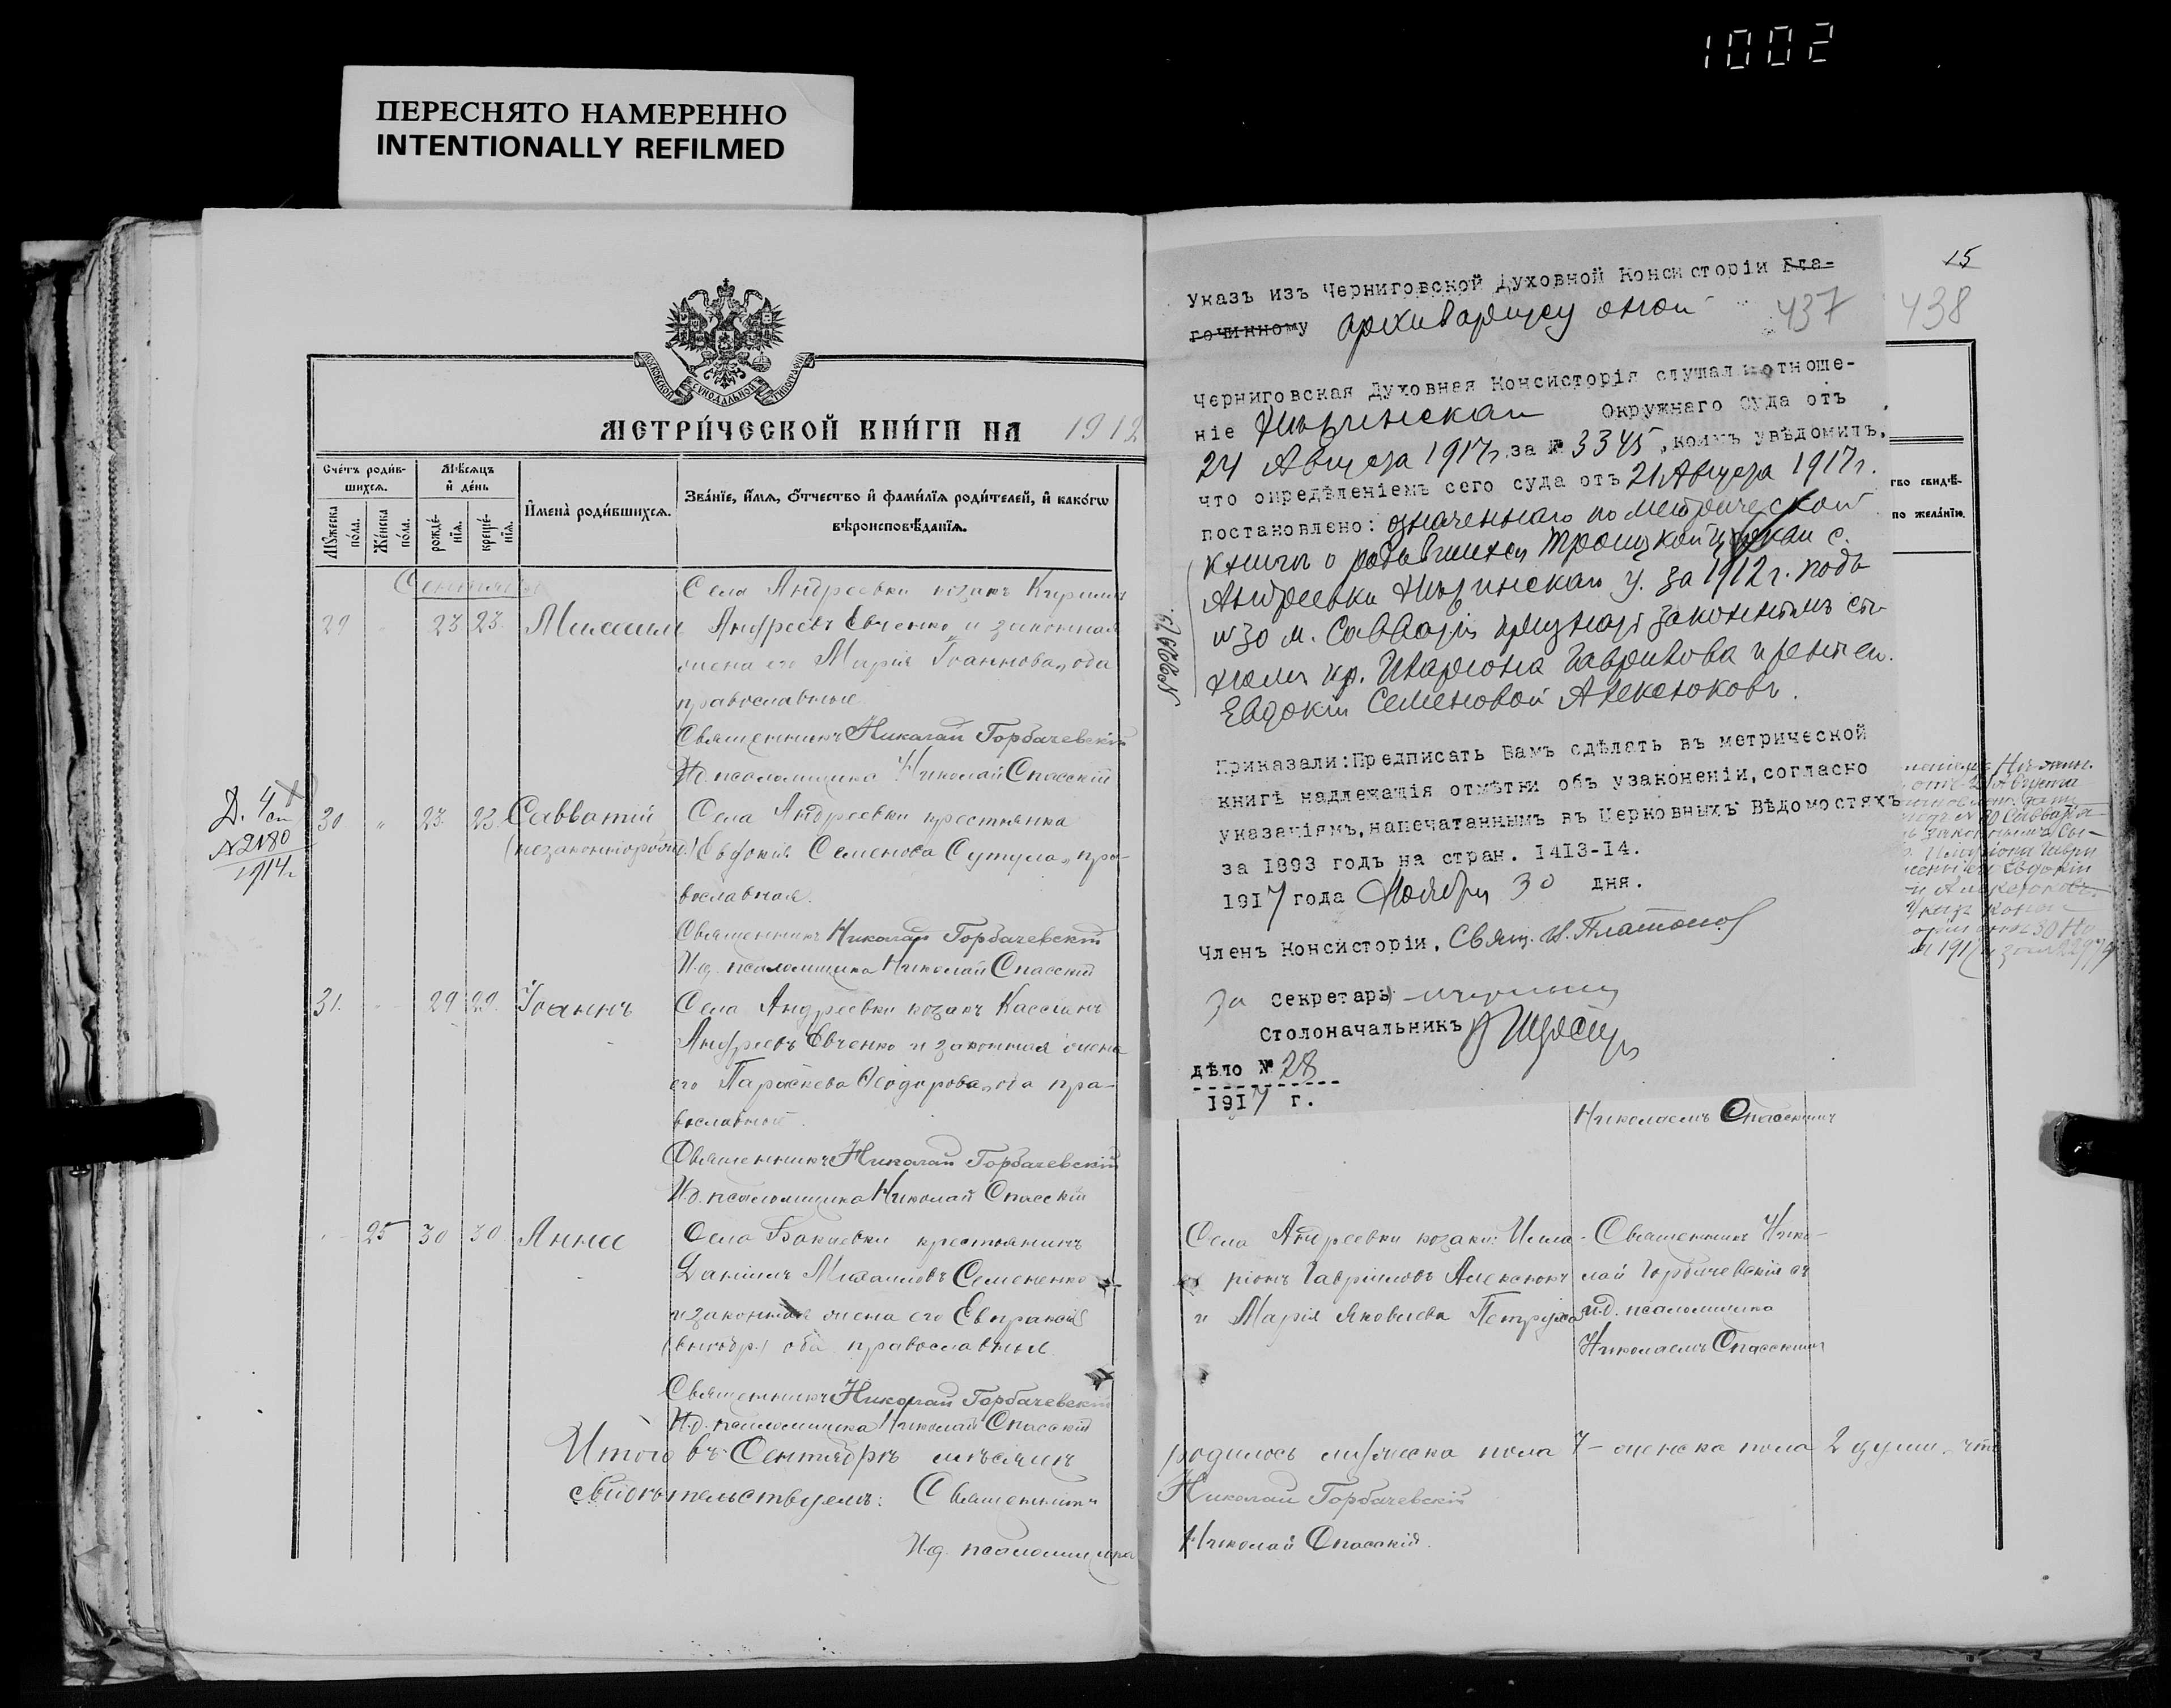 1002
ПЕРЕСНЯТО НАМЕРЕННО
INTENTIONALLY REFILMED
МОСКОВСКОЙ СѴНОДАЛЬНОЙ ТИПОГРАФІИ
МЕТРИ́ЧЕСКОЙ КНИ́ГИ НА 1912
Сче́тъ роди́в-
шихсѧ.
Мꙋ́жеска по́ла.
Же́нска по́ла.
Мѣ́сѧцъ
и҆ де́нь
рожде́-
нїѧ.
креще́-
нїѧ.
И҆мена̀ роди́вшихсѧ.
Зва́нїе, и҆́мѧ, ѻ҆́тчество и҆ фами́лїѧ роди́телей, и҆ како́гѡ
вѣроисповѣ́данїѧ.
Сентябрь
29 23 23. Михаилъ
Села Андреевки козакъ Кирилъ
Андреевъ Евченко и законная
жена его Марія Іоаннова, оба
православные.
Священникъ Николай Горбачевскій
И.д. псаломщика Николай Спасскій
Д. 4 ст
№ 2180
1914 г.
30 " 23. 23. Савватій
(незаконнорожд.)
Села Андреевки крестьянка
Евдокія Семенова Сутула, пра-
вославная.
Священникъ Николай Горбачевскій
И.д. псаломщика Николай Спасскій
31. 29 29. Іоаннъ
Села Андреевки козакъ Кассіанъ
Андреевъ Евченко и законная жена
его Параскева Ѳеодорова, оба пра-
вославные.
Священникъ Николай Горбачевскій
И.д. псаломщика Николай Спасскій
25 30 30 Анна
Села Бакаевки крестьянинъ
Даніилъ Михаиловъ Семененко
и законная жена его Евпраксія
оба православные.
Священникъ Николай Горбачевскій
И.д. псаломщика Николай Спасскій
Итого въ Сентябрѣ мѣсяцѣ
свидѣтельствуемъ: Священникъ
И.д. псаломщика
15
437
438
Указъ изъ Черниговской Духовной Консисторіи Бла-
гочинному архиваріусу оной
Черниговская Духовная Консисторія слушали отноше-
ніе Нѣжинскаго Окружнаго Суда отъ
24 Августа 1917 г. за № 3345, коимъ увѣдомилъ,
что опредѣленіемъ сего суда отъ 21 Августа 1917 г.
постановлено: означеннаго по метрической
книгѣ о родившихся Троицкой церкви с.
Андреевки Нѣжинскаго у. за 1912 г. подъ
№ 30 м. Савватія признать законнымъ сы-
номъ кр. Иларіона Гаврилова и жены ег.
Евдокіи Семеновой Алексюковъ.
Приказали: Предписать Вамъ сдѣлать въ метрической
книгѣ надлежащія отмѣтки объ узаконеніи, согласно
указаніямъ, напечатаннымъ въ Церковныхъ Вѣдомостяхъ
за 1893 годъ на стран. 1413-14.
1917 года Ноября 30 дня.
Членъ Консисторіи, Свящ. И. Платоновъ
За Секретарь
Столоначальникъ
дѣло № 28
1917 г.
тво свидѣ-
по жела́нїю.
Николаемъ Спасскимъ
Села Андреевки козаки: Илла-
ріонъ Гавріиловъ Алексюкъ
и Марія Яковлева Петруша
Священникъ Нико-
лай Горбачевскій съ
и.д. псаломщика
Николаемъ Спасскимъ
родилось мужеска пола 7 - женска пола 2 души. что
Николай Горбачевскій
Николай Спасскій.